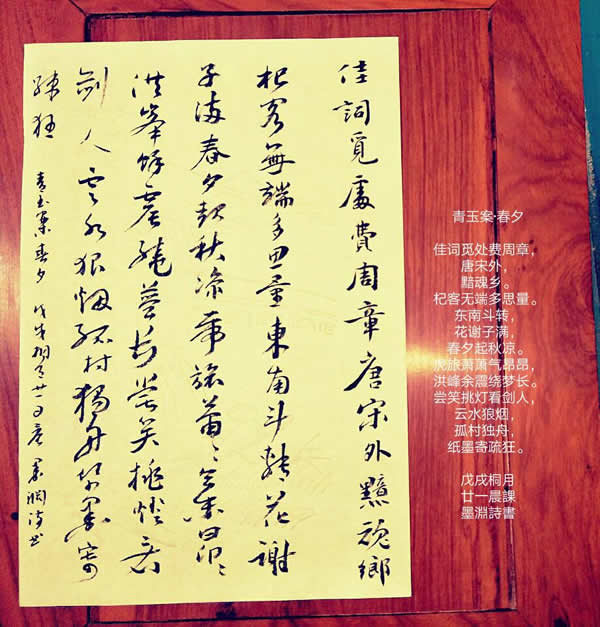 佳詞覓處費周章唐宋外黯魂鄉
杞客無端多思量東南斗轉花謝
子滿春夕起秋凉虎旅萧々气昂々
洪峯餘震繞夢長嘗笑挑燈看
劍人雲水狼烟孤村獨舟紙墨寄
疎狂 青玉案春夕 戊戌桐月廿一日晨 墨淵诗书
青玉案·春夕
佳词觅处费周章，
唐宋外，
黯魂乡。
杞客无端多思量。
东南斗转，
花谢子满，
春夕起秋凉。
虎旅萧萧气昂昂，
洪峰余震绕梦长。
尝笑挑灯看剑人，
云水狼烟，
孤村独舟，
纸墨寄疏狂。
戊戌桐月
廿一晨課
墨淵詩書